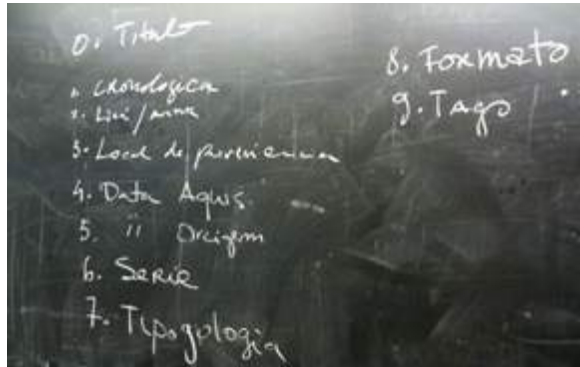 0. Titulo
1. Cronologica
2.
3. Local de proveniencia
4. Data Aquis.
5. " Origem
6. Serie
7. Tipogologia
8. Formato
9. Tago